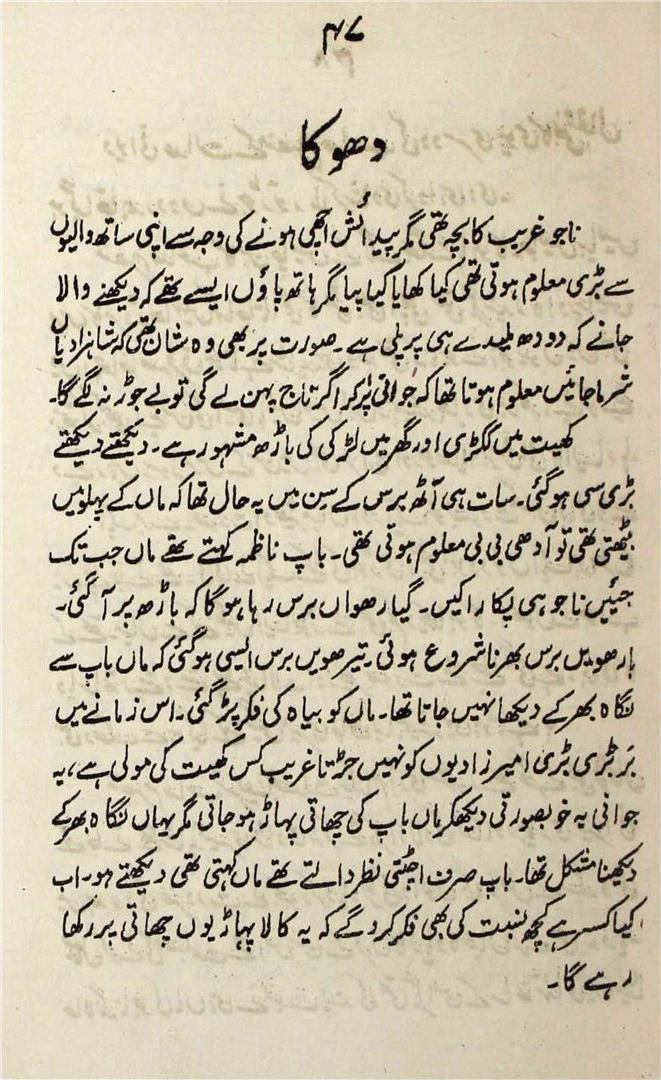 ۴۷
دھوکا
ناجو غریب کا بچہ تھی مگر پیدائش اچھی ہونے کی وجہ سے اپنی ساتھ والیوں
سے بڑی معلوم ہوتی تھی کیا کھایا کیا پیا مگر ہاتھ پاؤں ایسے تھے کہ دیکھنے والا
جانے کہ دودھ ملیدے ہی پر پلی ہے۔ صورت پر بھی وہ شان تھی کہ شاہزادیاں
شرما جائیں معلوم ہوتا تھا کہ جوانی پر آکر اگر تاج پہن لے گی تو بے جوڑ نہ لگے گا۔
کھیت میں ککڑی اور گھر میں لڑکی کی باڑھ مشہور ہے۔ دیکھتے دیکھتے
بڑی سی ہوگئی۔ سات ہی آٹھ برس کے سن میں یہ حال تھا کہ ماں کے پہلو میں
بیٹھتی تھی تو آدھی بی بی معلوم ہوتی تھی۔ باپ ناظمہ کہتے تھے ماں جب تک
جیئیں ناجو ہی پکارا کیں۔ گیارھواں برس رہا ہوگا کہ باڑھ پر آگئی۔
بارھویں برس بھرنا شروع ہوئی۔ تیرھویں برس ایسی ہوگئی کہ ماں باپ سے
نگاہ بھر کے دیکھا نہیں جاتا تھا۔ ماں کو بیاہ کی فکر پڑ گئی۔ اس زمانے میں
بَر بڑی بڑی امیرزادیوں کو نہیں جڑتا غریب کس کھیت کی مولی ہے، یہ
جوانی یہ خوبصورتی دیکھکر ماں باپ کی چھاتی پہاڑ ہوجاتی مگر یہاں نگاہ بھر کے
دیکھنا مشکل تھا۔ باپ صرف اچٹتی نظر ڈالتے تھے ماں کہتی تھی دیکھتے ہو۔ اب
کیا کسر ہے کچھ نسبت کی بھی فکر کرو گے کہ یہ کالا پہاڑ یوں چھاتی پر رکھا
رہے گا۔